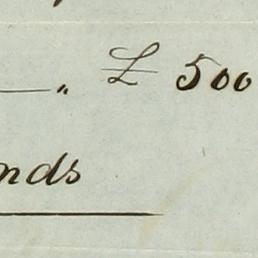 — " £ 500
nds